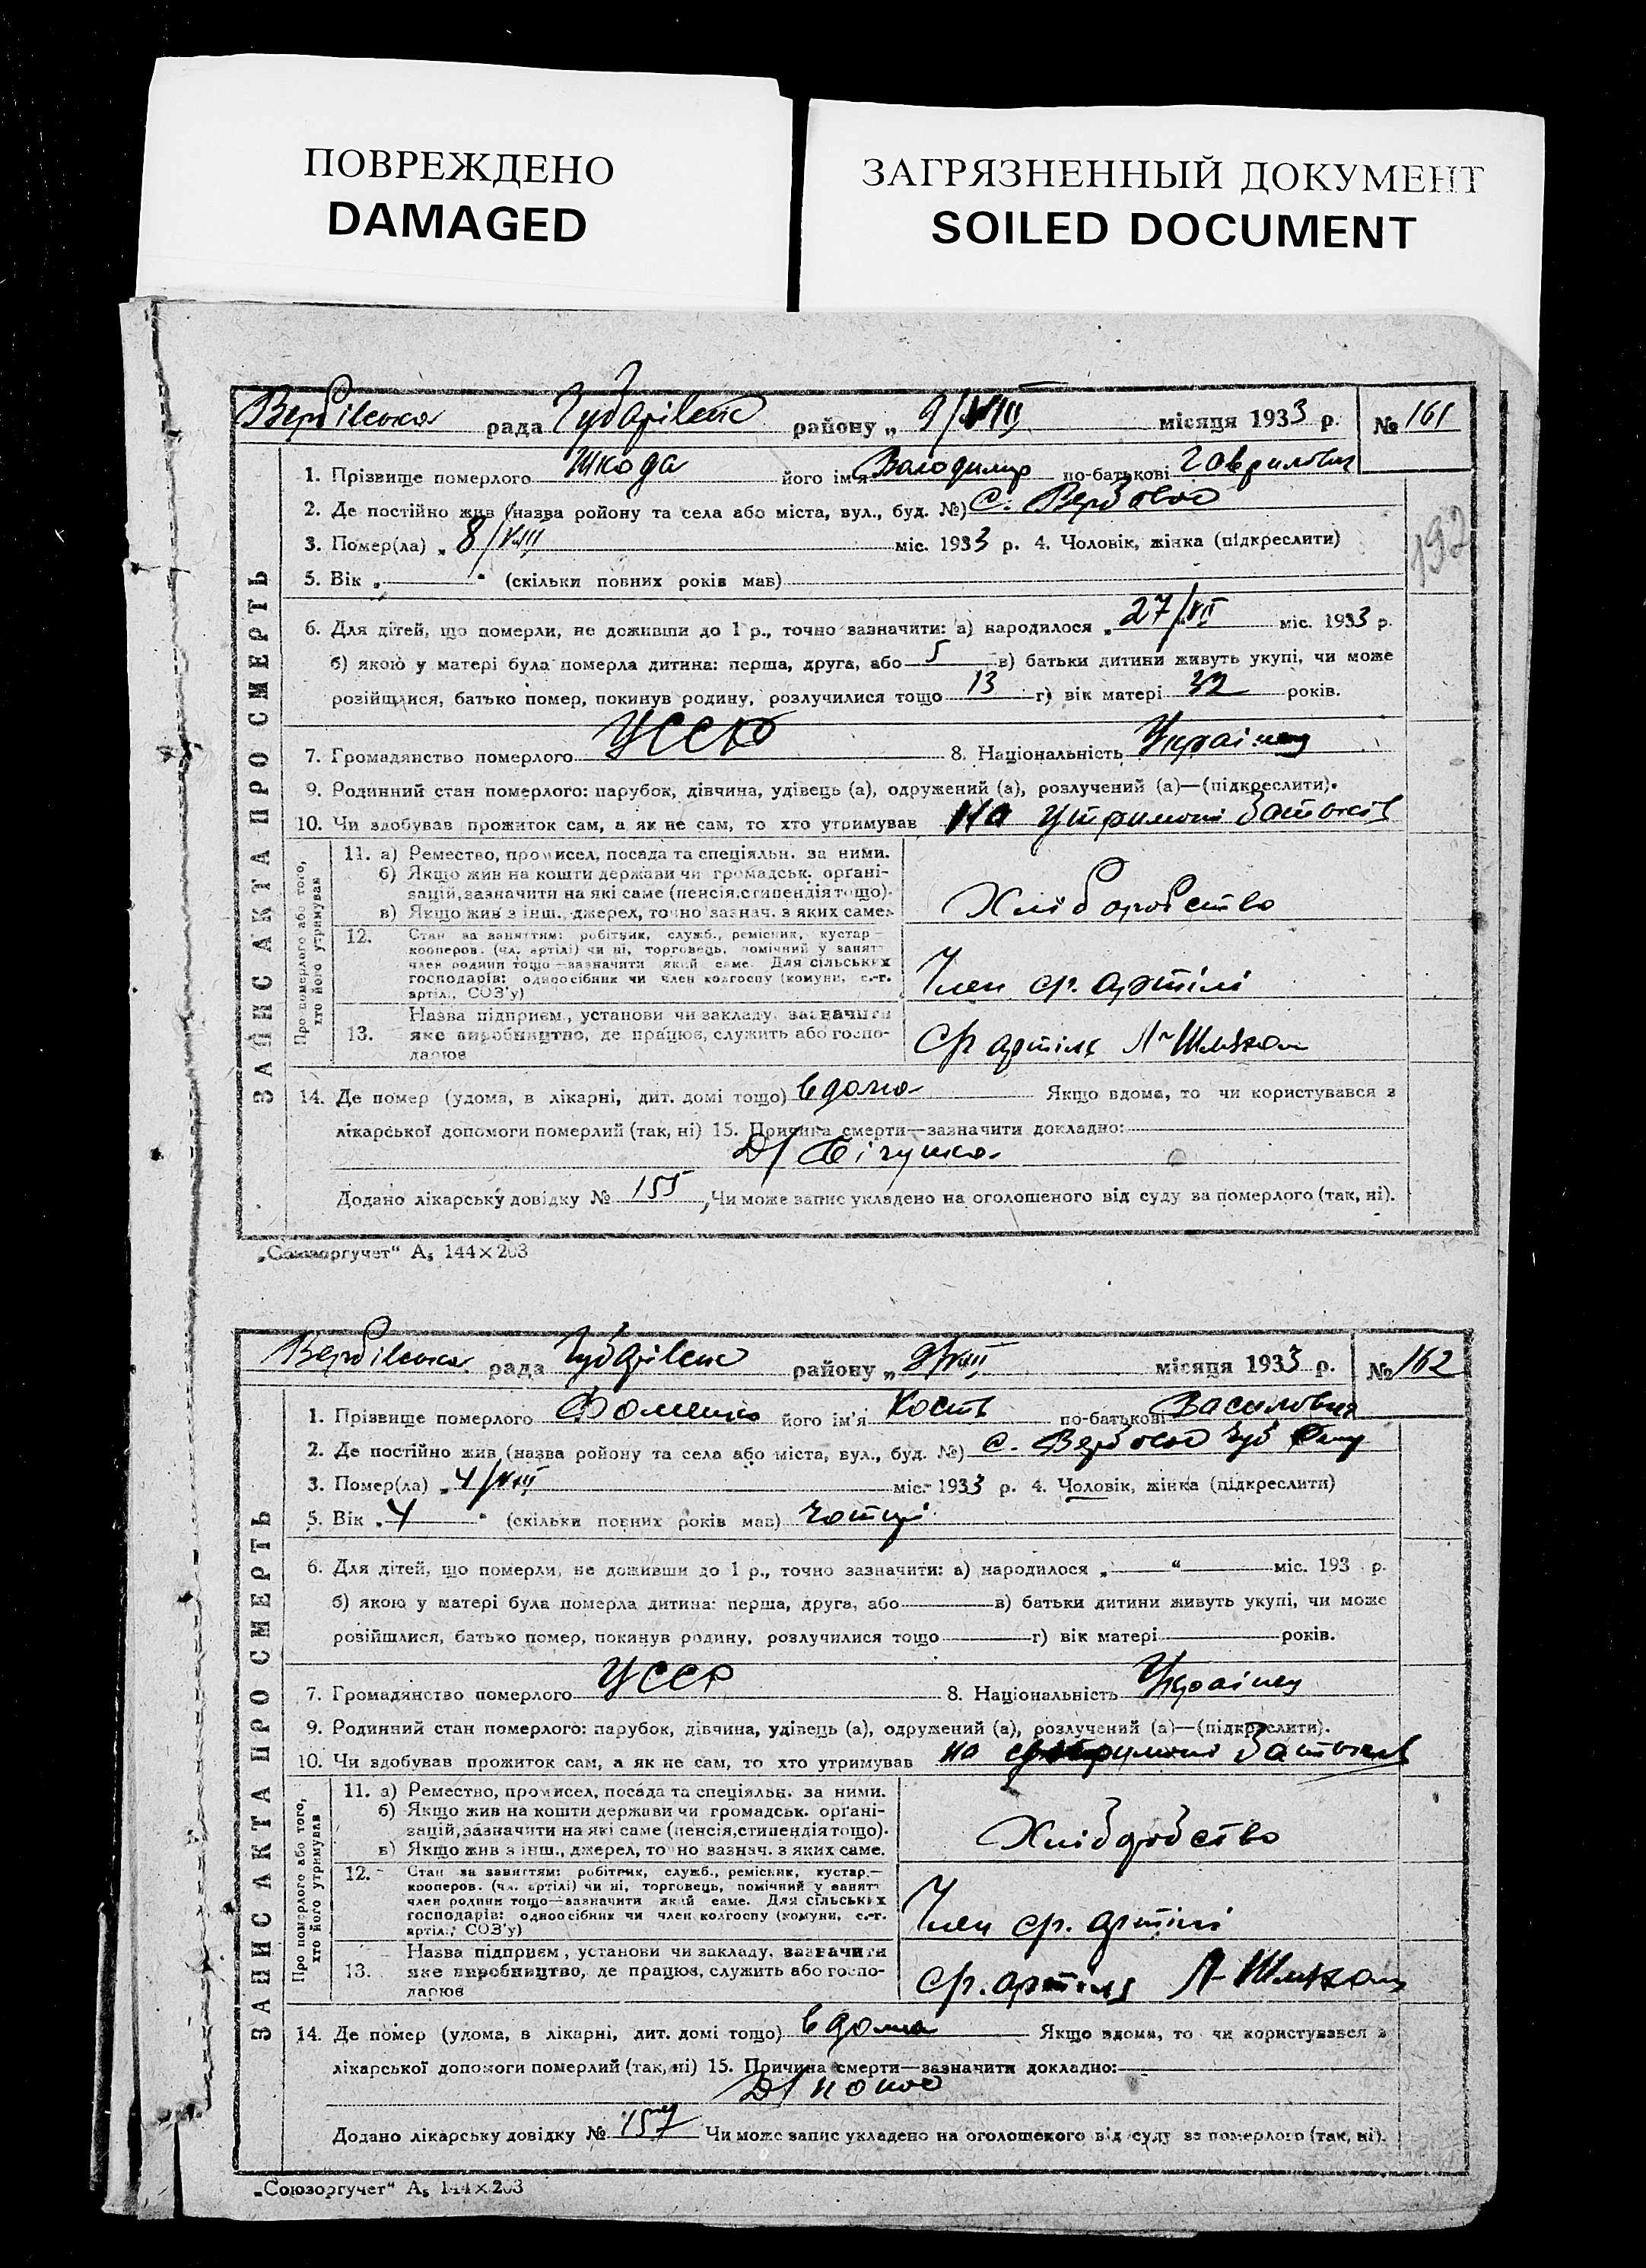 ПОВРЕЖДЕНО
DAMAGED
ЗАГРЯЗНЕННЫЙ ДОКУМЕНТ
SOILED DOCUMENT
Вербівська рада Чубарівськ району „ 9/VIII місяця 1933 р. № 161
1. Прізвище померлого Шкода його ім'я Володимир по-батькові Гаврилович
2. Де постійно жив (назва ройону та села або міста, вул., буд. №) С. Вербове
192
3. Помер(ла) „ 8/VIII міс. 1933 р. 4. Чоловік, жінка (підкреслити)
5. Вік „ " (скільки повних років мав)
6. Для дітей, що померли, не доживши до 1 р., точно зазначити: а) народилося „ 27/VII міс. 1933 р.
б) якою у матері була померла дитина: перша, друга, або 5 в) батьки дитини живуть укупі, чи може
розійшлися, батько помер, покинув родину, розлучилися тощо 13 г) вік матері 32 років.
7. Громадянство померлого УССР 8. Національність Українец
9. Родинний стан померлого: парубок, дівчина, удівець (а), одружений (а), розлучений (а)—(підкреслити).
10. Чи здобував прожиток сам, а як не сам, то хто утримував на утримані батьків
ЗАПИС АКТА ПРО СМЕРТЬ
Про померлого або того, хто його утримував
11. а) Ремество, промисел, посада та спеціяльн. за ними.
б) Якщо жив на кошти держави чи громадськ. органі-
зацій, зазначити на які саме (пенсія, стипендія тощо).
в) Якщо жив з інш., джерел, точно зазнач. з яких саме.
Хліборобство
12. Стан за заняттям: робітник, служб., ремісник, кустар—
кооперов. (чл. артілі) чи ні, торговець, помічний у занятт
член родини тощо—зазначити який саме. Для сільських
господарів: одноосібник чи член колгоспу (комуни, с.-г.
артіл., СОЗ'у)
Член ср. артілі
13. Назва підприєм., установи чи закладу, зазначити
яке виробництво, де працює, служить або госпо-
дарює
Ср артіль Л-Шляхом
14. Де помер (удома, в лікарні, дит. домі тощо) вдома Якщо вдома, то чи користувався з
лікарської допомоги померлий (так, ні) 15. Причина смерти—зазначити докладно:
Д/
Додано лікарську довідку № 155, Чи може запис укладено на оголошеного від суду за померлого (так, ні).
„Союзоргучет" А5 144×203
Вербівська рада Чубарівськ району „ 9/VIII місяця 1933 р. № 162
1. Прізвище померлого Фоменко його ім'я Кость по-батькові Василович
2. Де постійно жив (назва ройону та села або міста, вул., буд. №) С. Вербове Чуб
3. Помер(ла) „ 4/VIII міс. 1933 р. 4. Чоловік, жінка (підкреслити)
5. Вік „ 4 " (скільки повних років мав) чотирі
6. Для дітей, що померли, не доживши до 1 р., точно зазначити: а) народилося „ " міс. 193 р.
б) якою у матері була померла дитина: перша, друга, або в) батьки дитини живуть укупі, чи може
розійшлися, батько помер, покинув родину, розлучилися тощо г) вік матері років.
7. Громадянство померлого УССР 8. Національність Українец
9. Родинний стан померлого: парубок, дівчина, удівець (а), одружений (а), розлучений (а)—(підкреслити).
10. Чи здобував прожиток сам, а як не сам, то хто утримував на утримані батьків
ЗАПИС АКТА ПРО СМЕРТЬ
Про померлого або того, хто його утримував
11. а) Ремество, промисел, посада та спеціяльн. за ними.
б) Якщо жив на кошти держави чи громадськ. органі-
зацій, зазначити на які саме (пенсія, стипендія тощо).
в) Якщо жив з інш., джерел, точно зазнач. з яких саме.
Хліборобство
12. Стан за заняттям: робітник, служб., ремісник, кустар.—
кооперов. (чл. артілі) чи ні, торговець, помічний у занятт
член родини тощо—зазначити який саме. Для сільських
господарів: одноосібник чи член колгоспу (комуни, с.-г.
артіл., СОЗ'у)
Член ср. артілі
13. Назва підприєм., установи чи закладу, зазначити
яке виробництво, де працює, служить або госпо-
дарює
ср. артіль Л-Шляхом
14. Де помер (удома, в лікарні, дит. домі тощо) вдома Якщо вдома, то чи користувався з
лікарської допомоги померлий (так, ні) 15. Причина смерти—зазначити докладно:
Д/ понос
Додано лікарську довідку № 157 Чи може запис укладено на оголошеного від суду за померлого (так, ні).
„Союзоргучет" А5 144×203